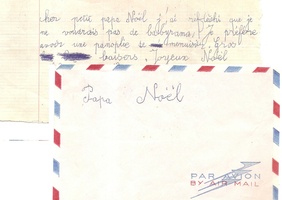 cher petit papa Noël j'ai réfléchi que je
ne voudrais pas de bibyrama. Je préfère
avoir une panoplie de menuisier. Gros
baisers. Joyeux Noël
Papa Noël
PAR AVION
BY AIR MAIL